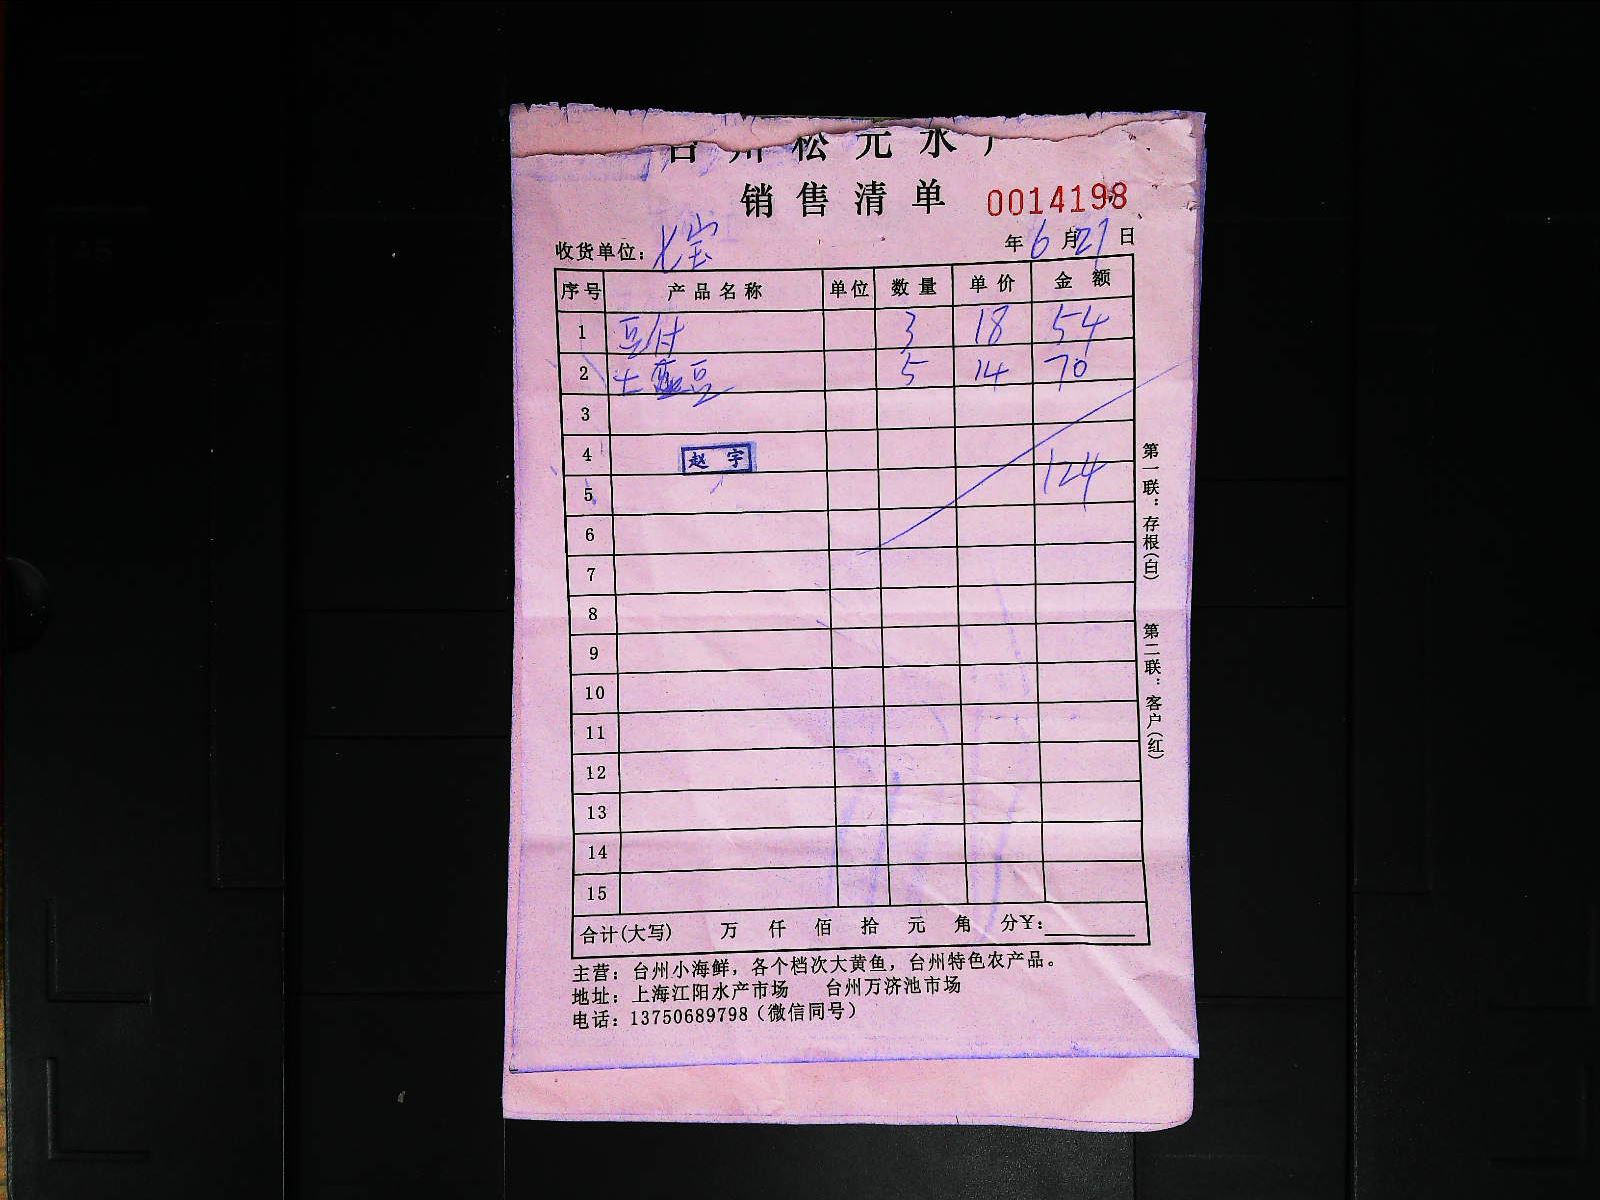 台州松元水产
销售清单 0014198
收货单位: 七宝 年 6 月 27 日
序号 产品名称 单位 数量 单价 金额
1 豆付 3 18 54
2 土豆 5 14 70
3
4 赵宇
5 124
6
7
8
9
10
11
12
13
14
15
合计(大写) 万 仟 佰 拾 元 角 分¥:
主营: 台州小海鲜, 各个档次大黄鱼, 台州特色农产品。
地址: 上海江阳水产市场 台州万济池市场
电话: 13750689798 (微信同号)
第一联: 存根(白)
第二联: 客户(红)